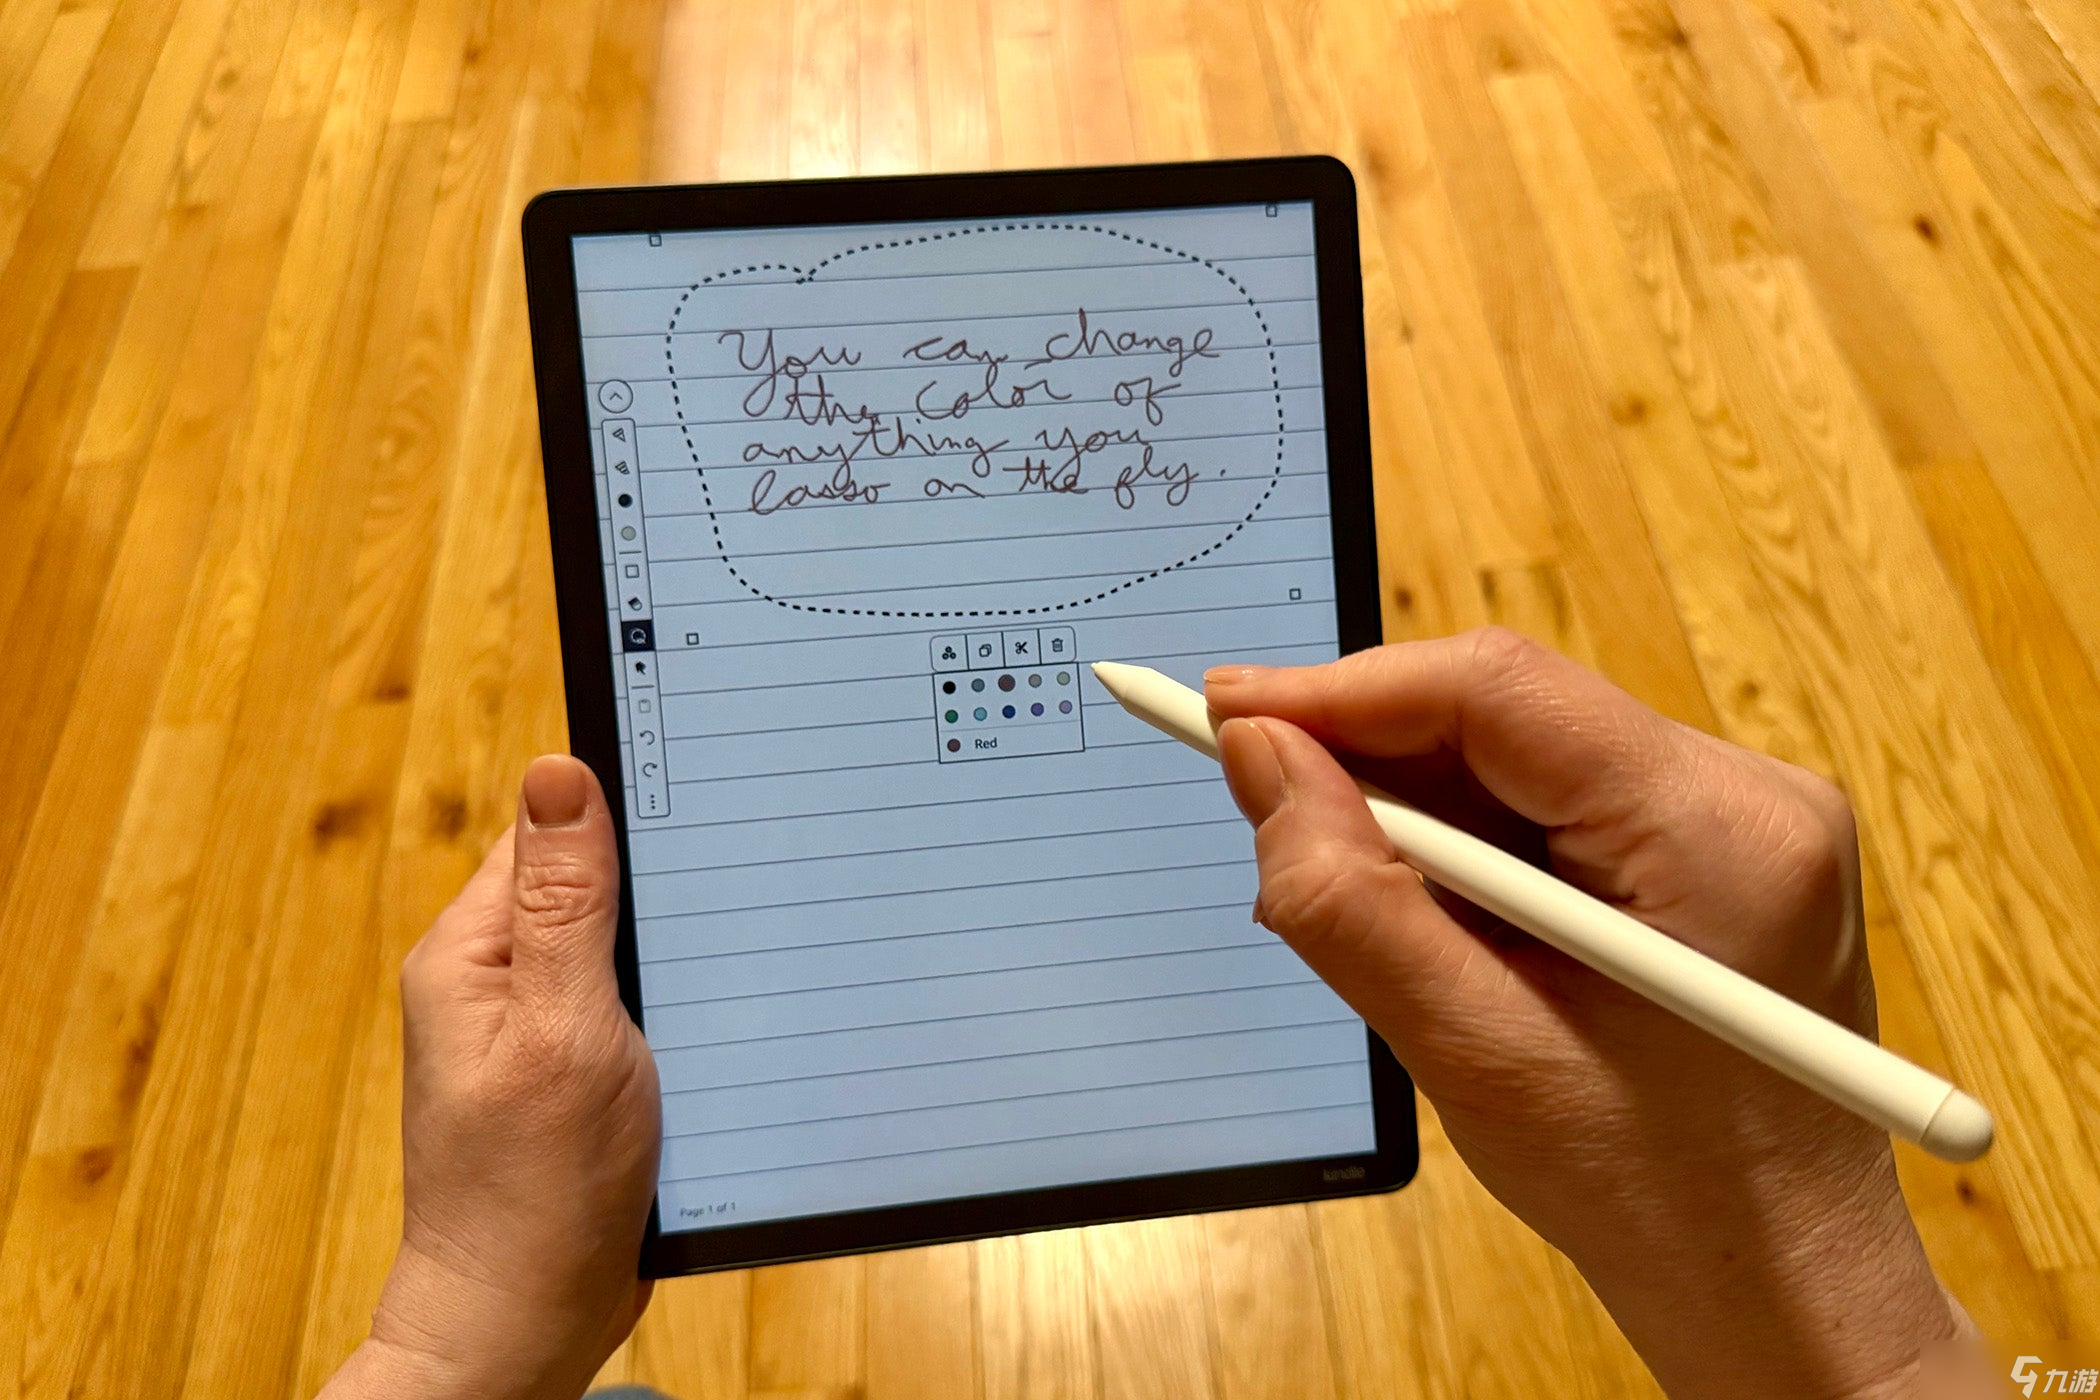 You can change
the color of
anything you
lasso on the fly.
Red
Page 1 of 1
kindle
九游